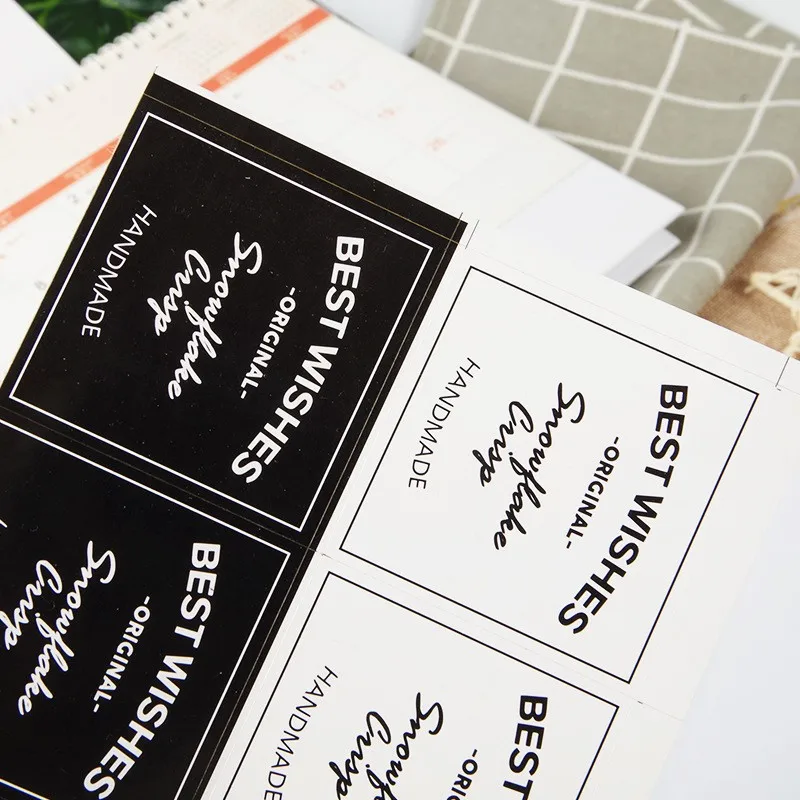 BEST WISHES
-ORIGINAL-
Snowflake
Crisp
HANDMADE
BEST WISHES
-ORIGINAL-
Snowflake
Crisp
HANDMADE
BEST WISHES
-ORIGINAL-
Snowflake
Crisp
BEST
-ORIG
Snowflake
Crisp
HANDMADE